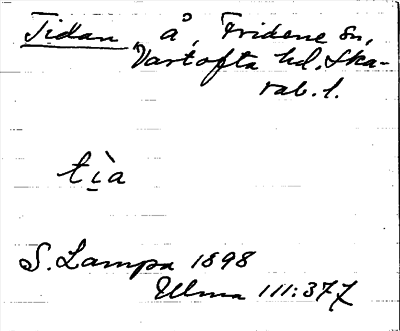 Tidan, å, Fridene sn,
Vartofta hd. Ska-
rab. l.
tìa
S. Lampa 1898
Ulma 111:377